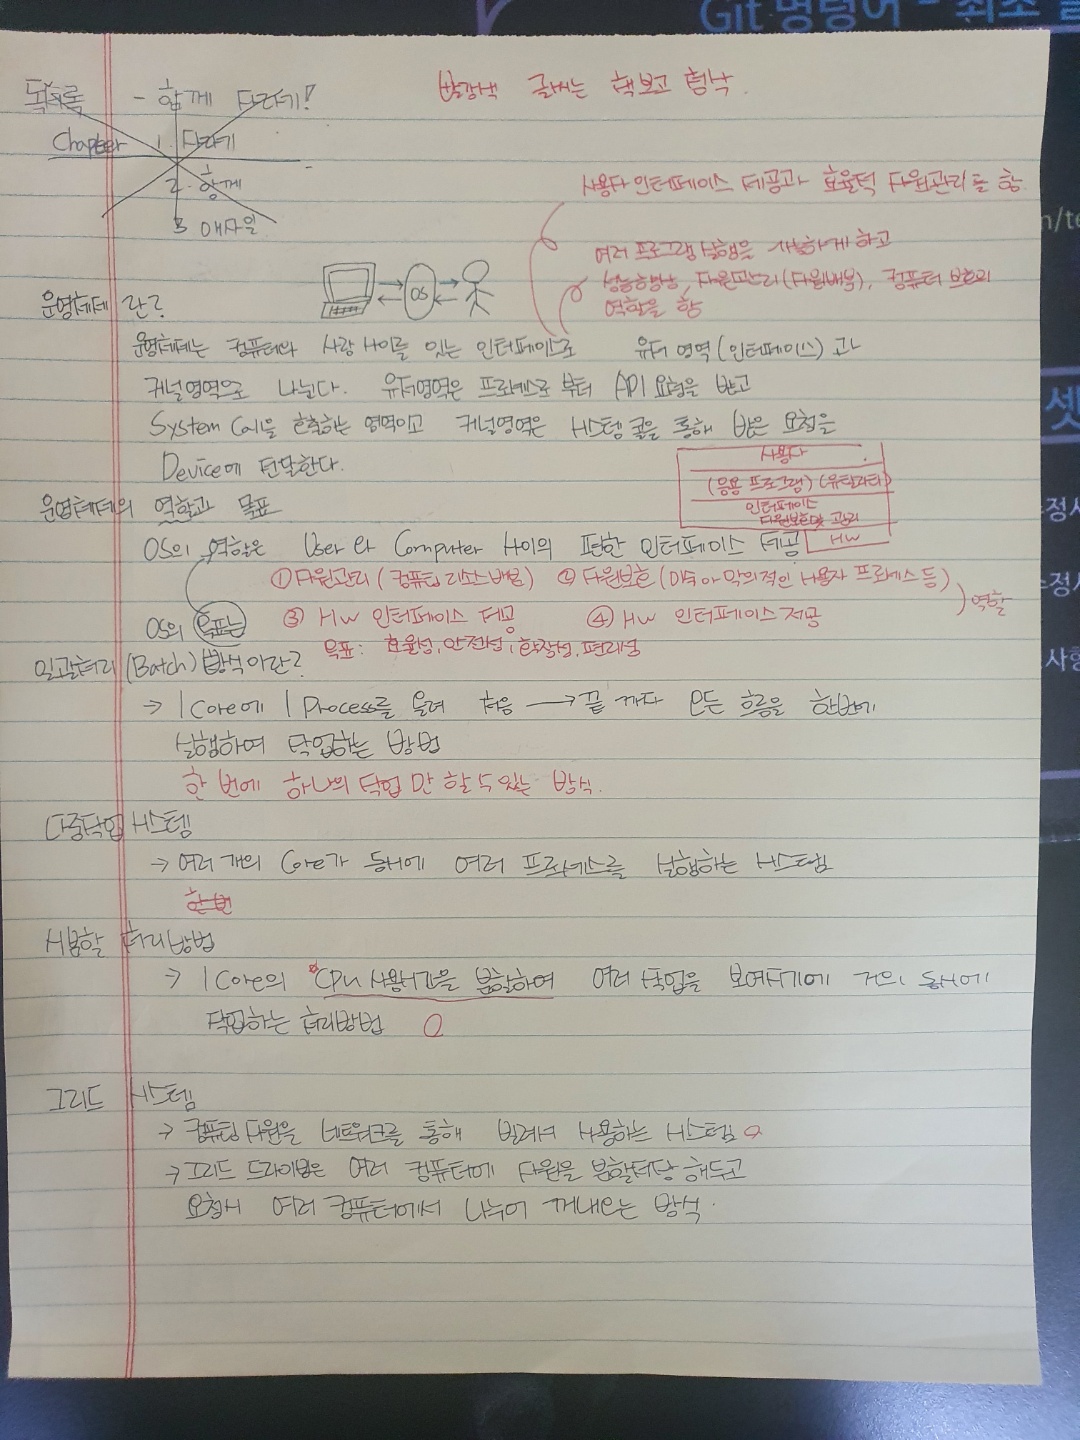 Git 명령어 - 최초
빨강색 글씨는 책보고 첨삭.
목차록 - 함께 자라기!
Chapter 1. 자라기
2. 함께
3 애자일
사용자 인터페이스 제공과 효율적 자원관리를 함
여러 프로그램 실행을 가능하게 하고
성능향상, 자원관리(자원배분), 컴퓨터 보호의
역할을 함
운영체제란?
OS
운영체제는 컴퓨터와 사람 사이를 잇는 인터페이스로 유저 영역(인터페이스)과
커널영역으로 나뉜다. 유저영역은 프로세스로 부터 API 요청을 받고
System Call을 호출하는 영역이고 커널영역은 시스템 콜을 통해 받은 요청을
Device에 전달한다.
사용자
(응용 프로그램) (유틸리티)
인터페이스
자원보호및 관리
HW
운영체제의 역할과 목표
OS의 역할은 User와 Computer 사이의 편한 인터페이스 제공
① 자원관리 (컴퓨팅 리소스 배분) ② 자원보호 (미숙 아 악의적인 사용자 프로세스 등)
③ HW 인터페이스 제공 ④ HW 인터페이스 제공
역할
OS의 목표는
목표: 효율성, 안전성, 확장성, 편리성
일괄처리(Batch) 방식이란?
→ 1 Core에 1 Process를 올려 처음 → 끝 까지 모든 흐름을 한번에
실행하여 작업하는 방법
한 번에 하나의 작업 만 할 수 있는 방식.
다중작업 시스템
→ 여러 개의 Core가 동시에 여러 프로세스를 실행하는 시스템
한 번
시분할 처리방법
→ 1 Core의 CPU 사용시간을 분할하여 여러 작업을 보여지기에 거의 동시에
작업하는 처리방법
그리드 시스템
→ 컴퓨팅 자원을 네트워크를 통해 빌려서 사용하는 시스템
→ 그리드 드라이브은 여러 컴퓨터에 자원을 분할저장 해두고
요청시 여러 컴퓨터에서 나누어 꺼내오는 방식.